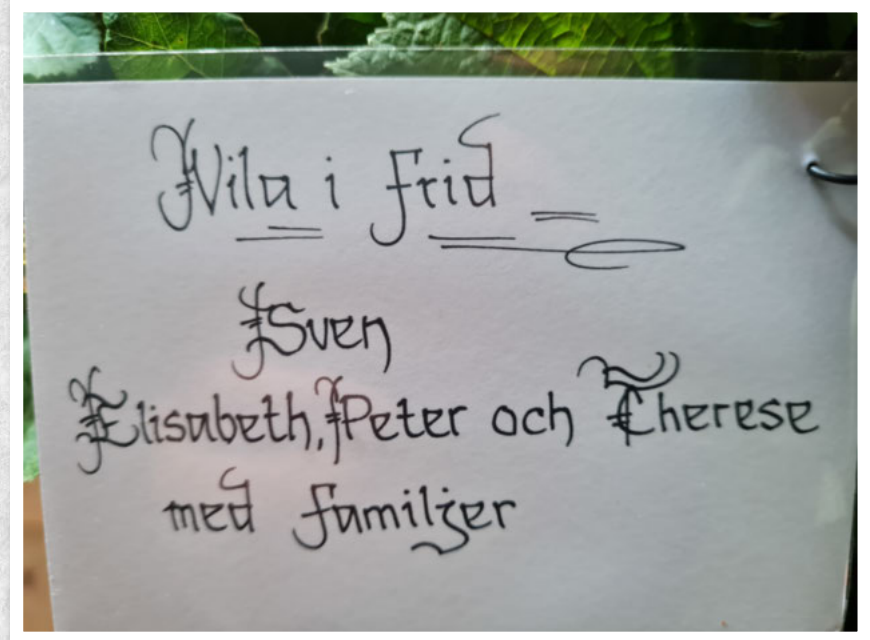 Vila i frid
Sven
Elisabeth, Peter och Therese
med familjer